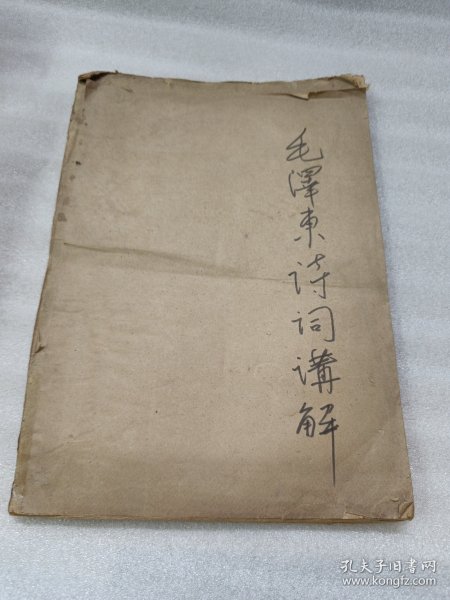 毛澤東诗词講解
孔夫子旧书网
www.kongfz.com